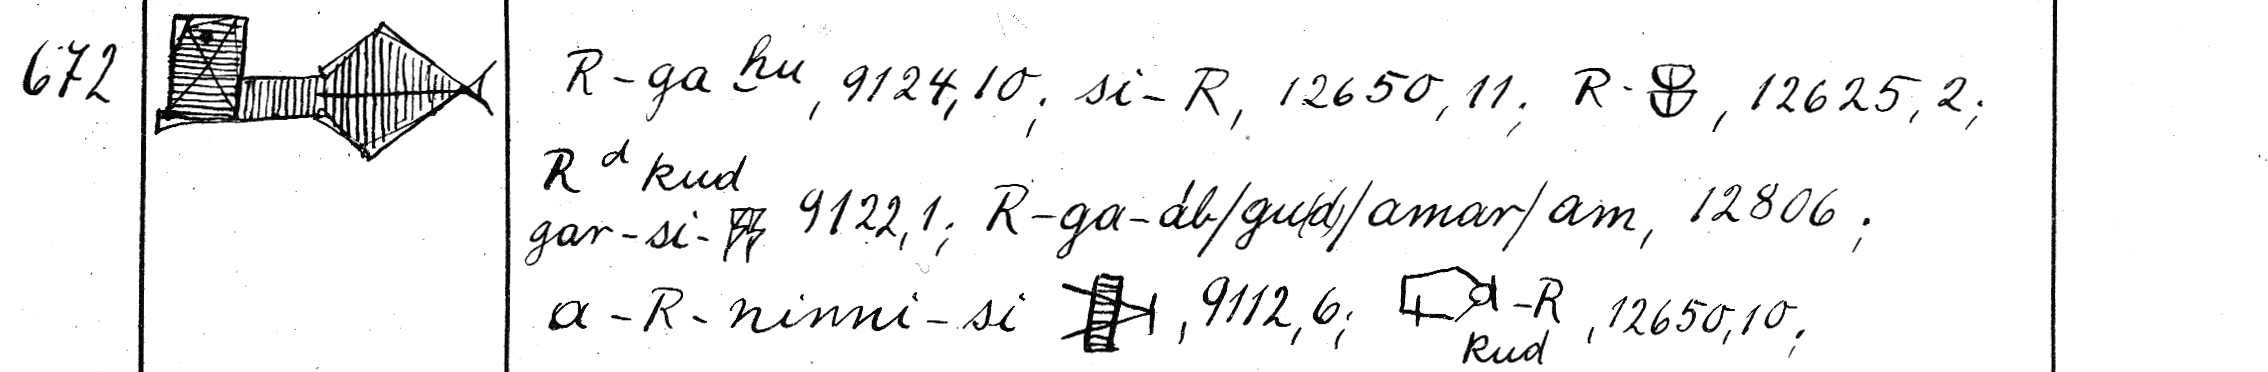 672 R-ga ḫu, 9124,10; si-R, 12650,11; R-, 12625,2;
R d kud
gar-si- 9122,1; R-ga-áb/gu(d)/amar/am, 12806;
a-R-ninni-si , 9112,6; -R, 12650,10;
kud